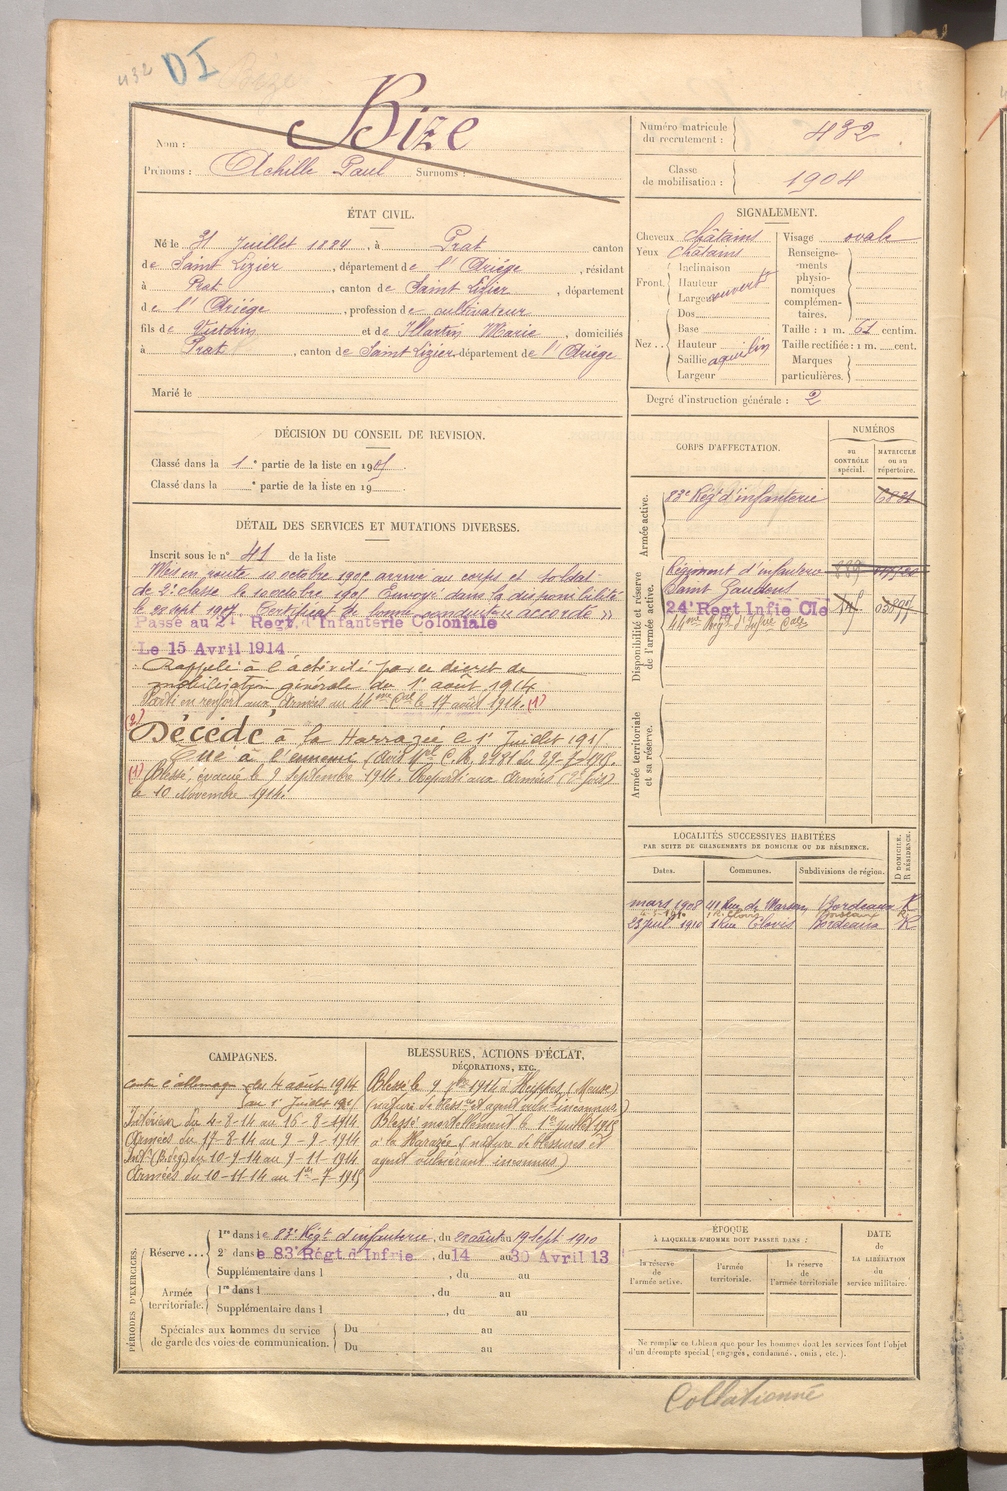 432 DI
Nom : Bize
Prénoms : Achille Paul Surnoms :
Numéro matricule du recrutement : 432
Classe de mobilisation : 1904
ÉTAT CIVIL.
Né le 31 Juillet 1884, à Prat canton
de Saint Lizier, département de l'Ariége, résidant
à Prat, canton de Saint Lizier, département
de l'Ariége, profession de cultivateur
fils de Victorin et de Martin Marie, domiciliés
à Prat, canton de Saint Lizier, département de l'Ariége
Marié le
SIGNALEMENT.
Cheveux châtains Visage ovale
Yeux châtains
Front. Inclinaison
Hauteur
Largeur
couvert
Nez... Dos
Base
Hauteur
Saillie aquilin
Largeur
Renseignements physionomiques complémentaires.
Taille : 1 m. 61 centim.
Taille rectifiée : 1 m. cent.
Marques particulières.
Degré d'instruction générale : 2
DÉCISION DU CONSEIL DE REVISION.
Classé dans la 1e partie de la liste en 1905.
Classé dans la e partie de la liste en 19
DÉTAIL DES SERVICES ET MUTATIONS DIVERSES.
Inscrit sous le n° 41 de la liste
Mis en route 10 octobre 1905 arrivé au corps et soldat
de 2e classe le 10 octobre 1905 Envoyé dans la disponibilité
le 28 sept 1907. Certificat de bonne conduite "accordé"
Passé au 24e Regt d'Infanterie Coloniale
Le 15 Avril 1914
Rappelé à l'activité par le décret de
mobilisation générale du 1er août 1914
Parti en renfort aux Armées au 44me Cal le 17 août 1914. (1)
(2) Décédé à la Harazée le 1er Juillet 1915
Tué à l'ennemi
(1) Blessé, évacué le 9 Septembre 1914. Reparti aux Armées (2e fois)
le 10 Novembre 1914.
CORPS D'AFFECTATION.
NUMÉROS
au CONTRÔLE spécial.
MATRICULE ou au répertoire.
Armée active.
83e Régt d'infanterie 6831
Disponibilité et réserve de l'armée active.
Régiment d'infanterie
Saint Gaudens
24e Regt Infie Cle
44me Régt d'Infie Cale
Armée territoriale et sa réserve.
LOCALITÉS SUCCESSIVES HABITÉES
PAR SUITE DE CHANGEMENTS DE DOMICILE OU DE RÉSIDENCE.
Dates. Communes. Subdivisions de région. D DOMICILE. R RÉSIDENCE.
mars 1908 41 Rue de Marson Bordeaux R
4-5-1910 1 R. Clovis Bordeaux R
23 juil. 1910 1 Rue Clovis Bordeaux R
CAMPAGNES.
Contre l'allemagne du 4 août 1914
au 1er Juillet 1915
Intérieur du 4-8-14 au 16-8-1914
Armées du 17-8-14 au 9-9-1914
du 10-9-14 au 9-11-1914
Armées du 10-11-14 au 1er-7-1915
BLESSURES, ACTIONS D'ÉCLAT,
DÉCORATIONS, ETC.
Blessé le 9 7bre 1914 à Heippes (Meuse)
(nature de bless. et agent vuln. inconnus)
Blessé mortellement le 1er juillet 1915
à la Harazée (nature de blessures et
agent vulnérant inconnus)
PÉRIODES D'EXERCICES.
Réserve... 1re dans le 83e Régt d'infanterie, du 28 août au 19 sept 1910
2e dans le 83e Régt d'Infrie, du 14 au 30 Avril 13
Supplémentaire dans l , du au
Armée territoriale. 1re dans l , du au
Supplémentaire dans l , du au
Spéciales aux hommes du service de garde des voies de communication. Du au
Du au
ÉPOQUE
À LAQUELLE L'HOMME DOIT PASSER DANS :
la réserve de l'armée active.
l'armée territoriale.
la réserve de l'armée territoriale
DATE de LA LIBÉRATION du service militaire.
Ne remplir ce tableau que pour les hommes dont les services font l'objet
d'un décompte spécial (engagés, condamné., omis, etc.).
Collationné